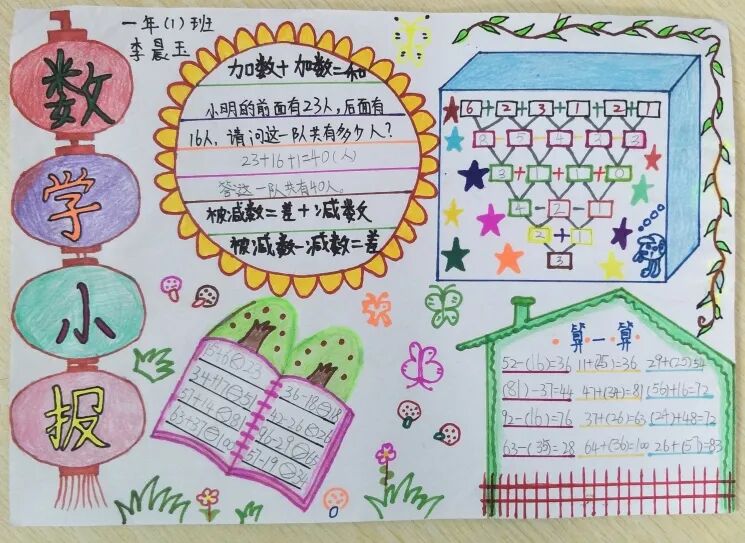 数学小报
一年(1)班
李晨玉
加数+加数=和
小明的前面有23人,后面有
16人,请问这一队共有多少人?
23+16+1=40(人)
答这一队共有40人。
被减数=差+减数
被减数-减数=差
6+2+3+1+2+1
8-5-4-3-3
3+1+1+0
4-2-1
2+1
3
34+17=51
57+14
63+37=100
36-18=18
42-26
96-29
57-19
算一算
52-(16)=36 11+(25)=36 29+(25)54
(81)-37=44 47+(34)=81 (56)+16=72
92-(16)=76 37+(26)=63 (24)+48=72
63-(35)=28 64+(36)=100 26+(57)=83